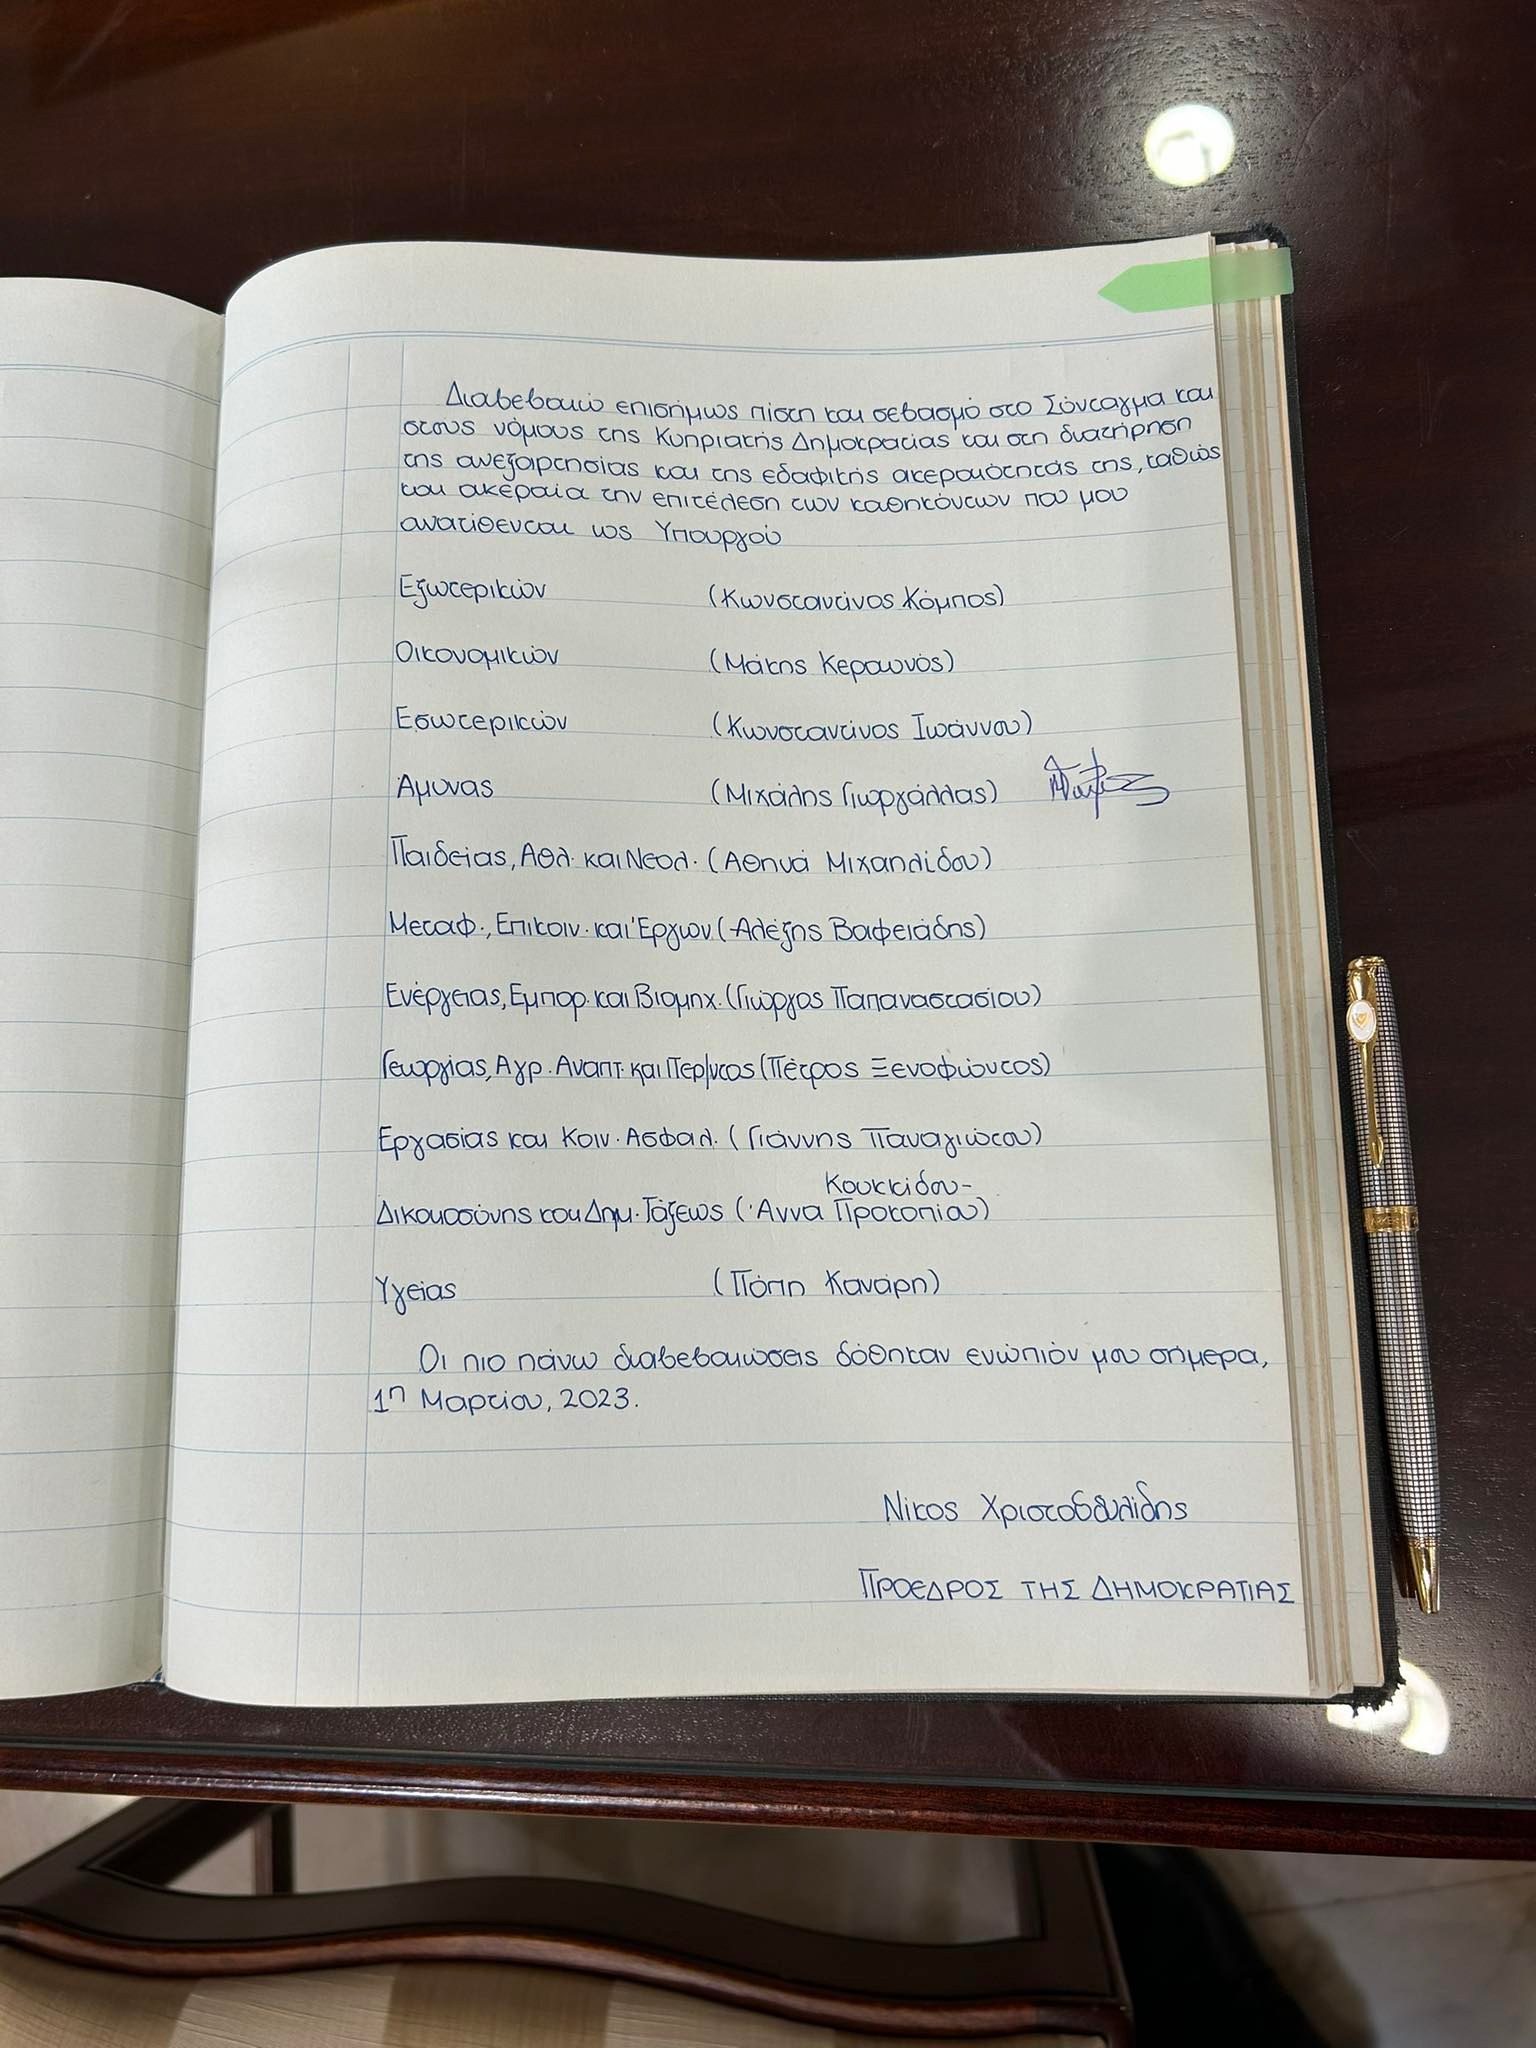 Διαβεβαιώ επισήμως πίστη και σεβασμό στο Σύνταγμα και
στους νόμους της Κυπριακής Δημοκρατίας και στη διατήρηση
της ανεξαρτησίας και της εδαφικής ακεραιότητάς της, καθώς
και ακέραια την επιτέλεση των καθηκόντων που μου
ανατίθενται ως Υπουργού
Εξωτερικών (Κωνσταντίνος Κόμπος)
Οικονομικών (Μάκης Κεραυνός)
Εσωτερικών (Κωνσταντίνος Ιωάννου)
Άμυνας (Μιχάλης Γιωργάλλας)
Παιδείας, Αθλ. και Νεολ. (Αθηνά Μιχαηλίδου)
Μεταφ., Επικοιν. και Έργων (Αλέξης Βαφειάδης)
Ενέργειας, Εμπορ. και Βιομηχ. (Γιώργος Παπαναστασίου)
Γεωργίας, Αγρ. Αναπτ. και Περ/ντος (Πέτρος Ξενοφώντος)
Εργασίας και Κοιν. Ασφαλ. (Γιάννης Παναγιώτου)
Κουκκίδου-
Δικαιοσύνης και Δημ. Τάξεως (Άννα Προκοπίου)
Υγείας (Πόπη Κανάρη)
Οι πιο πάνω διαβεβαιώσεις δόθηκαν ενώπιόν μου σήμερα,
1η Μαρτίου, 2023.
Νίκος Χριστοδουλίδης
ΠΡΟΕΔΡΟΣ ΤΗΣ ΔΗΜΟΚΡΑΤΙΑΣ